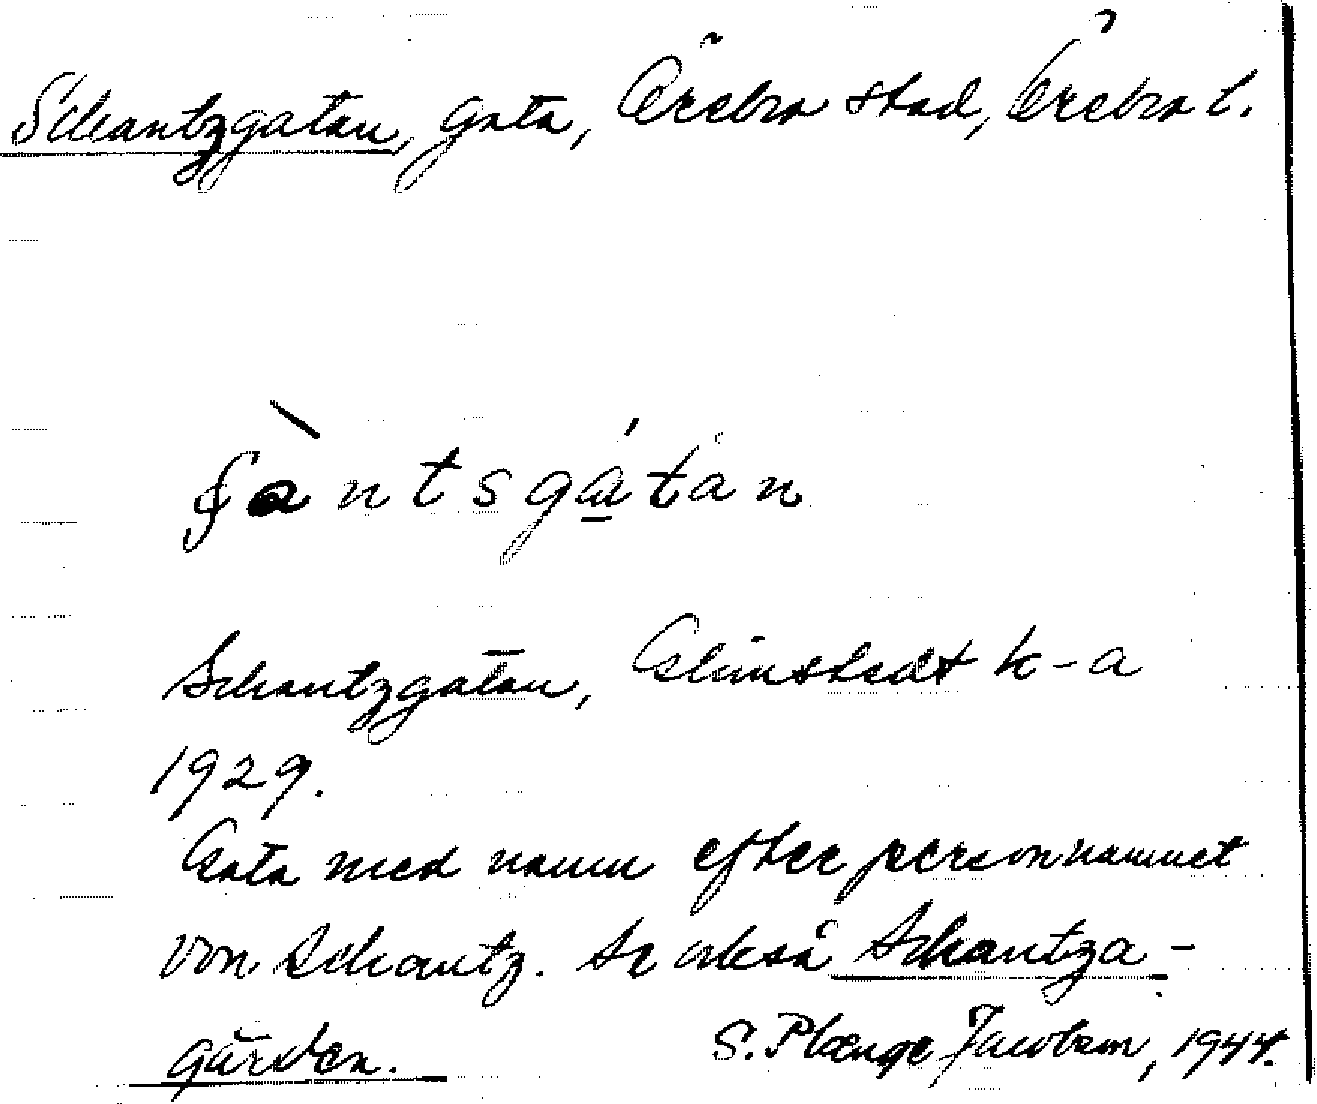 Schantzgatan, gata, Örebro stad, Örebro l.
ʃàntsgátan
Schantzgatan, Glimstedt k-a
1929.
Gata med namn efter personnamnet
von Schantz. Se också Schantza-
gården. S. Plænge Jacobson, 1944.